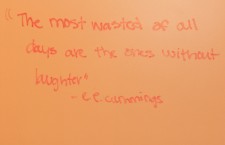 "The most wasted of all
days are the ones without
laughter"
- e.e. cummings